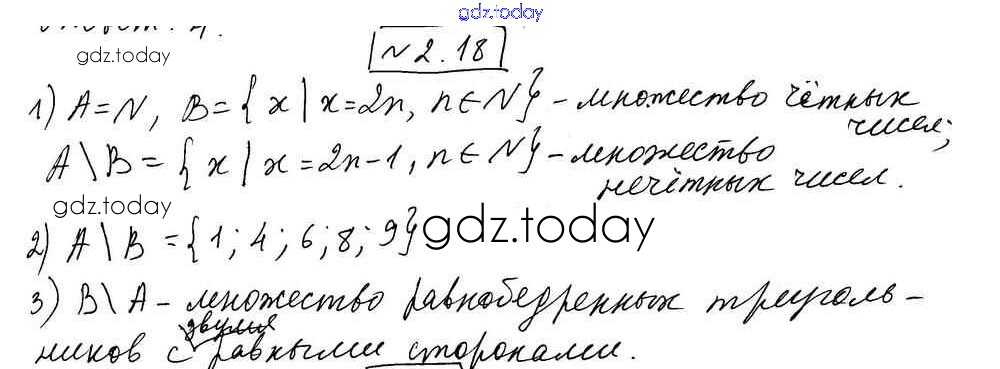 gdz.today
gdz.today
№2.18
1) A=N, B={x|x=2n, n∈N} - множество чётных
чисел;
A\B={x|x=2n-1, n∈N} - множество
нечётных чисел.
gdz.today
2) A\B={1;4;6;8;9}
gdz.today
3) B\A - множество равнобедренных треуголь-
двумя
ников с равными сторонами.